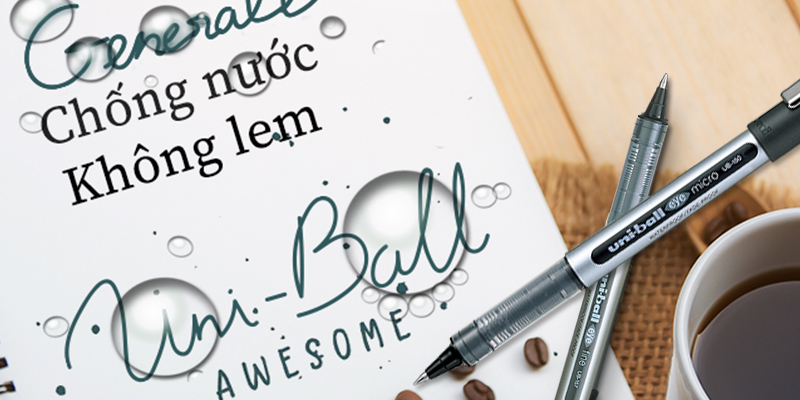 Generall
Chống nước
Không lem
Uni-Ball
AWESOME
uni-ball eye micro UB-150
WATERPROOF/FADE PROOF
uni-ball eye fine